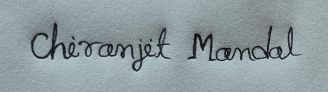 Chiranjit Mandal